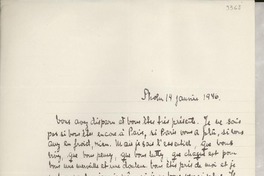 3362
Sthlm 14 janvier 1946.
Vous avez disparu et vous êtes très présente. Je ne sais
pas si vous êtes encore à Paris, si Paris vous a plû, si vous
avez eu froid, rien. Mais je sais l'essentiel que vous
que vous, que vous luttez que chaque est pour
vous une merveille et une douleur. Vous êtes près de moi et je